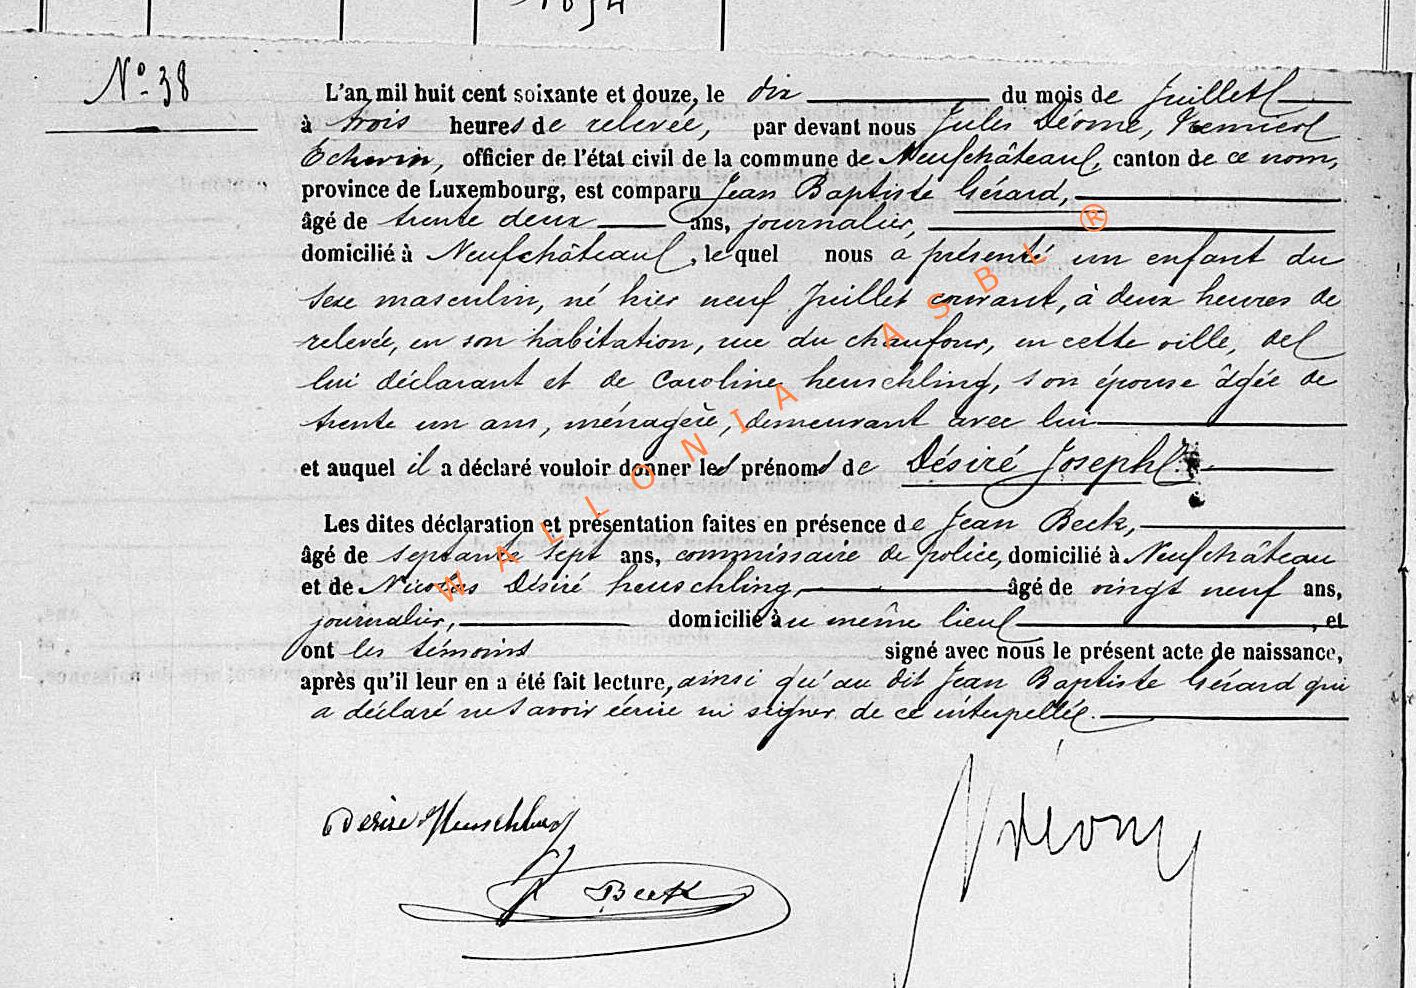 1854
Nº 38
L'an mil huit cent soixante et douze, le dix du mois de Juillet
à trois heures de relevée, par devant nous Jules Déome, Premier
Echevin, officier de l'état civil de la commune de Neufchâteau, canton de ce nom,
province de Luxembourg, est comparu Jean Baptiste Gérard,
âgé de trente deux ans, journalier,
domicilié à Neufchâteau, lequel nous a présenté un enfant du
sexe masculin, né hier neuf Juillet courant, à deux heures de
relevée, en son habitation, rue du chaufour, en cette ville, de
lui déclarant et de Caroline heuschling, son épouse âgée de
trente un ans, ménagère, demeurant avec lui
et auquel il a déclaré vouloir donner les prénoms de Désiré Joseph
Les dites déclaration et présentation faites en présence de Jean Beck,
âgé de septante sept ans, commissaire de police, domicilié à Neufchâteau
et de Nicolas Désiré heuschling, âgé de vingt neuf ans,
journalier, domicilié au même lieu, et
ont les témoins signé avec nous le présent acte de naissance,
après qu'il leur en a été fait lecture, ainsi qu'au dit Jean Baptiste Gérard qui
a déclaré ne savoir écrire ni signer de ce interpellé.
Désiré Heuschling
Beck
WALLONIA ASBL ®